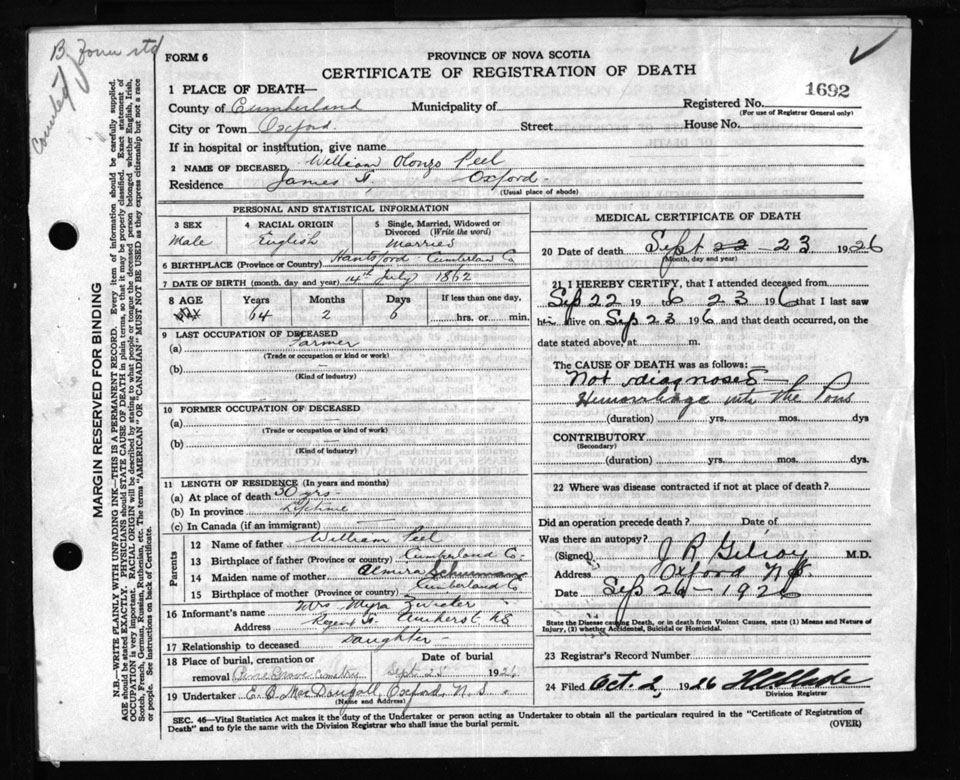 B. Form std
Counted
FORM 6
PROVINCE OF NOVA SCOTIA
CERTIFICATE OF REGISTRATION OF DEATH
1692
1 PLACE OF DEATH—
County of Cumberland Municipality of Registered No.
(For use of Registrar General only)
City or Town Oxford. Street House No.
If in hospital or institution, give name
2 NAME OF DECEASED William Olonzo Peel
Residence James St, Oxford -
(Usual place of abode)
PERSONAL AND STATISTICAL INFORMATION
3 SEX 4 RACIAL ORIGIN 5 Single, Married, Widowed or Divorced (Write the word)
Male English Married
6 BIRTHPLACE (Province or Country) Hansford - Cumberland Co
7 DATE OF BIRTH (month, day and year) 14th July 1862
8 AGE Years Months Days If less than one day,
64 2 6 hrs. or min.
9 LAST OCCUPATION OF DECEASED
(a) Farmer
(Trade or occupation or kind of work)
(b)
(Kind of industry)
10 FORMER OCCUPATION OF DECEASED
(a)
(Trade or occupation or kind of work)
(b)
(Kind of industry)
11 LENGTH OF RESIDENCE (In years and months)
(a) At place of death 30 yrs -
(b) In province Lifetime
(c) In Canada (if an immigrant)
Parents
12 Name of father William Peel
13 Birthplace of father (Province or country) Cumberland Co-
14 Maiden name of mother Almira
15 Birthplace of mother (Province or country) Cumberland Co
16 Informant's name Mrs Myra
Address Regent St. Amherst NS
17 Relationship to deceased Daughter -
18 Place of burial, cremation or removal Pine Grove Cemetery Date of burial Sept 25 1926
19 Undertaker E. B. MacDougall, Oxford, N. S.
(Name and Address)
MEDICAL CERTIFICATE OF DEATH
20 Date of death Sept 22 - 23 1926
(Month, day and year)
21 I HEREBY CERTIFY, that I attended deceased from
Sep 22 19 to 23 1926 that I last saw
him alive on Sep 23 1926 and that death occurred, on the
date stated above, at m.
The CAUSE OF DEATH was as follows:
Not diagnosed -
Hemorrhage into the Pons
(duration) yrs. mos. dys
CONTRIBUTORY
(Secondary)
(duration) yrs. mos. dys
22 Where was disease contracted if not at place of death?
Did an operation precede death? Date of
Was there an autopsy?
(Signed) J R Gilroy M.D.
Address Oxford N S.
Date Sep 26 - 1926
State the Disease causing Death, or in death from Violent Causes, state (1) Means and Nature of
Injury, or (2) whether Accidental, Suicidal or Homicidal.
23 Registrar's Record Number
24 Filed Oct. 2, 1926
Division Registrar
SEC. 46—Vital Statistics Act makes it the duty of the Undertaker or person acting as Undertaker to obtain all the particulars required in the "Certificate of Registration of
Death" and to fyle the same with the Division Registrar who shall issue the burial permit. (OVER)
MARGIN RESERVED FOR BINDING
N.B.—WRITE PLAINLY WITH UNFADING INK—THIS IS A PERMANENT RECORD. Every item of information should be carefully supplied.
AGE should be stated EXACTLY. PHYSICIANS should STATE CAUSE OF DEATH in plain terms, so that it may be properly classified. Exact statement of
OCCUPATION is very important. RACIAL ORIGIN will be described by stating to what people or tongue the deceased person belonged whether English, Irish,
Scotch, French, German, Russian, Ruthenian, etc. The terms "AMERICAN" or "CANADIAN" MUST NOT BE USED as they express citizenship but not a race
or people. See instructions on back of Certificate.